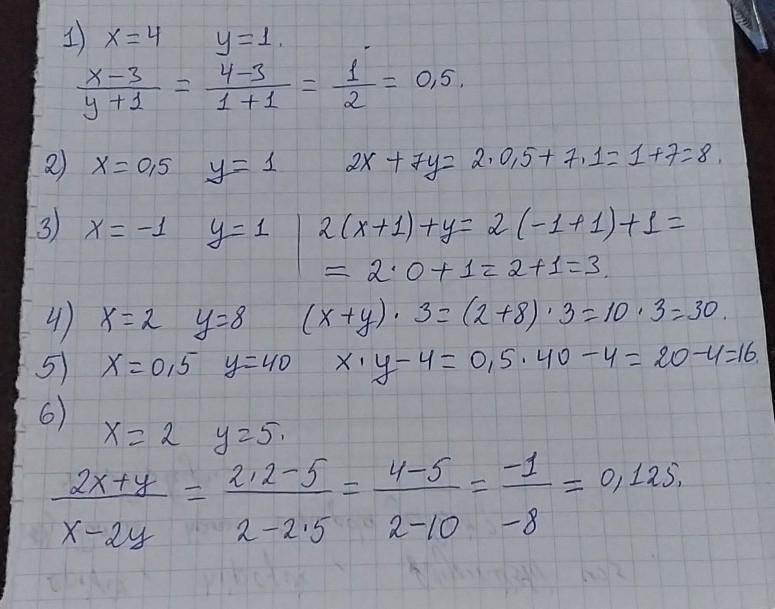 1) x=4 y=1.
x-3/y+1 = 4-3/1+1 = 1/2 = 0,5.
2) x=0,5 y=1 2x+7y= 2·0,5+7·1=1+7=8.
3) x=-1 y=1 | 2(x+1)+y= 2(-1+1)+1=
= 2·0+1=2+1=3.
4) x=2 y=8 (x+y)·3=(2+8)·3=10·3=30.
5) x=0,5 y=40 x·y-4=0,5·40-4=20-4=16.
6)
x=2 y=5.
2x+y/x-2y = 2·2-5/2-2·5 = 4-5/2-10 = -1/-8 = 0,125.